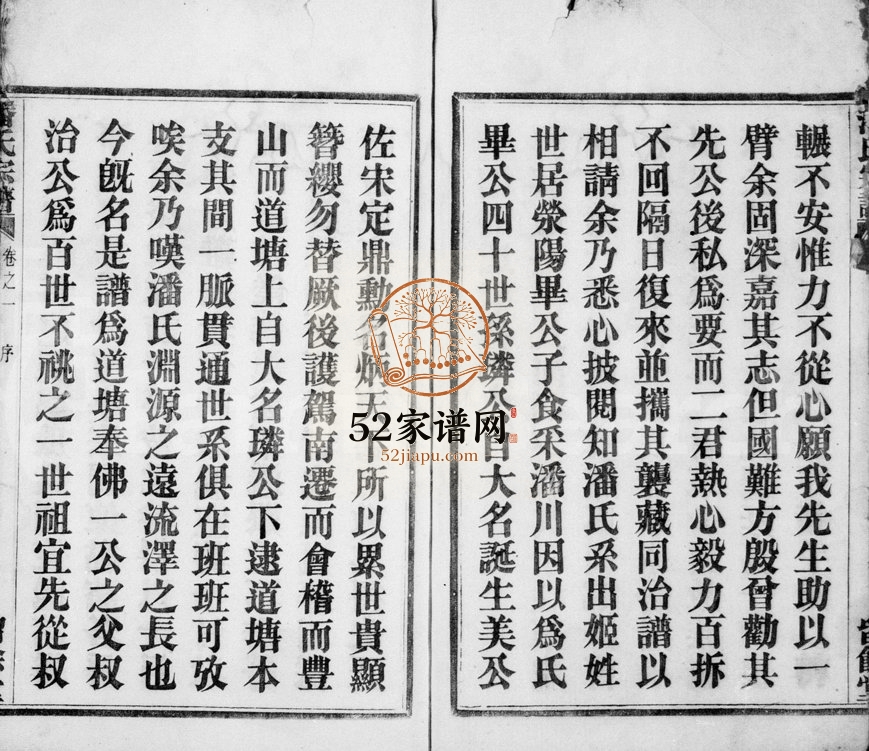 輾不安惟力不從心願我先生助以一
臂余固深嘉其志但國難方殷曾勸其
先公後私爲要而二君熱心毅力百拆
不回隔日復來並攜其襲藏同治譜以
相請余乃悉心披閱知潘氏系出姬姓
世居滎陽畢公子食采潘川因以爲氏
畢公四十世孫璘公自大名誕生美公
佐宋定鼎勳名炳天下所以累世貴顯
簪纓勿替厥後護駕南遷而會稽而豐
山而道塘上自大名璘公下逮道塘本
支其間一脈貫通世系俱在班班可攷
唉余乃嘆潘氏淵源之遠流澤之長也
今旣名是譜爲道塘奉佛一公之父叔
治公爲百世不祧之一世祖宜先從叔
氏宗譜
卷之一
序
52家谱网
52jiapu.com